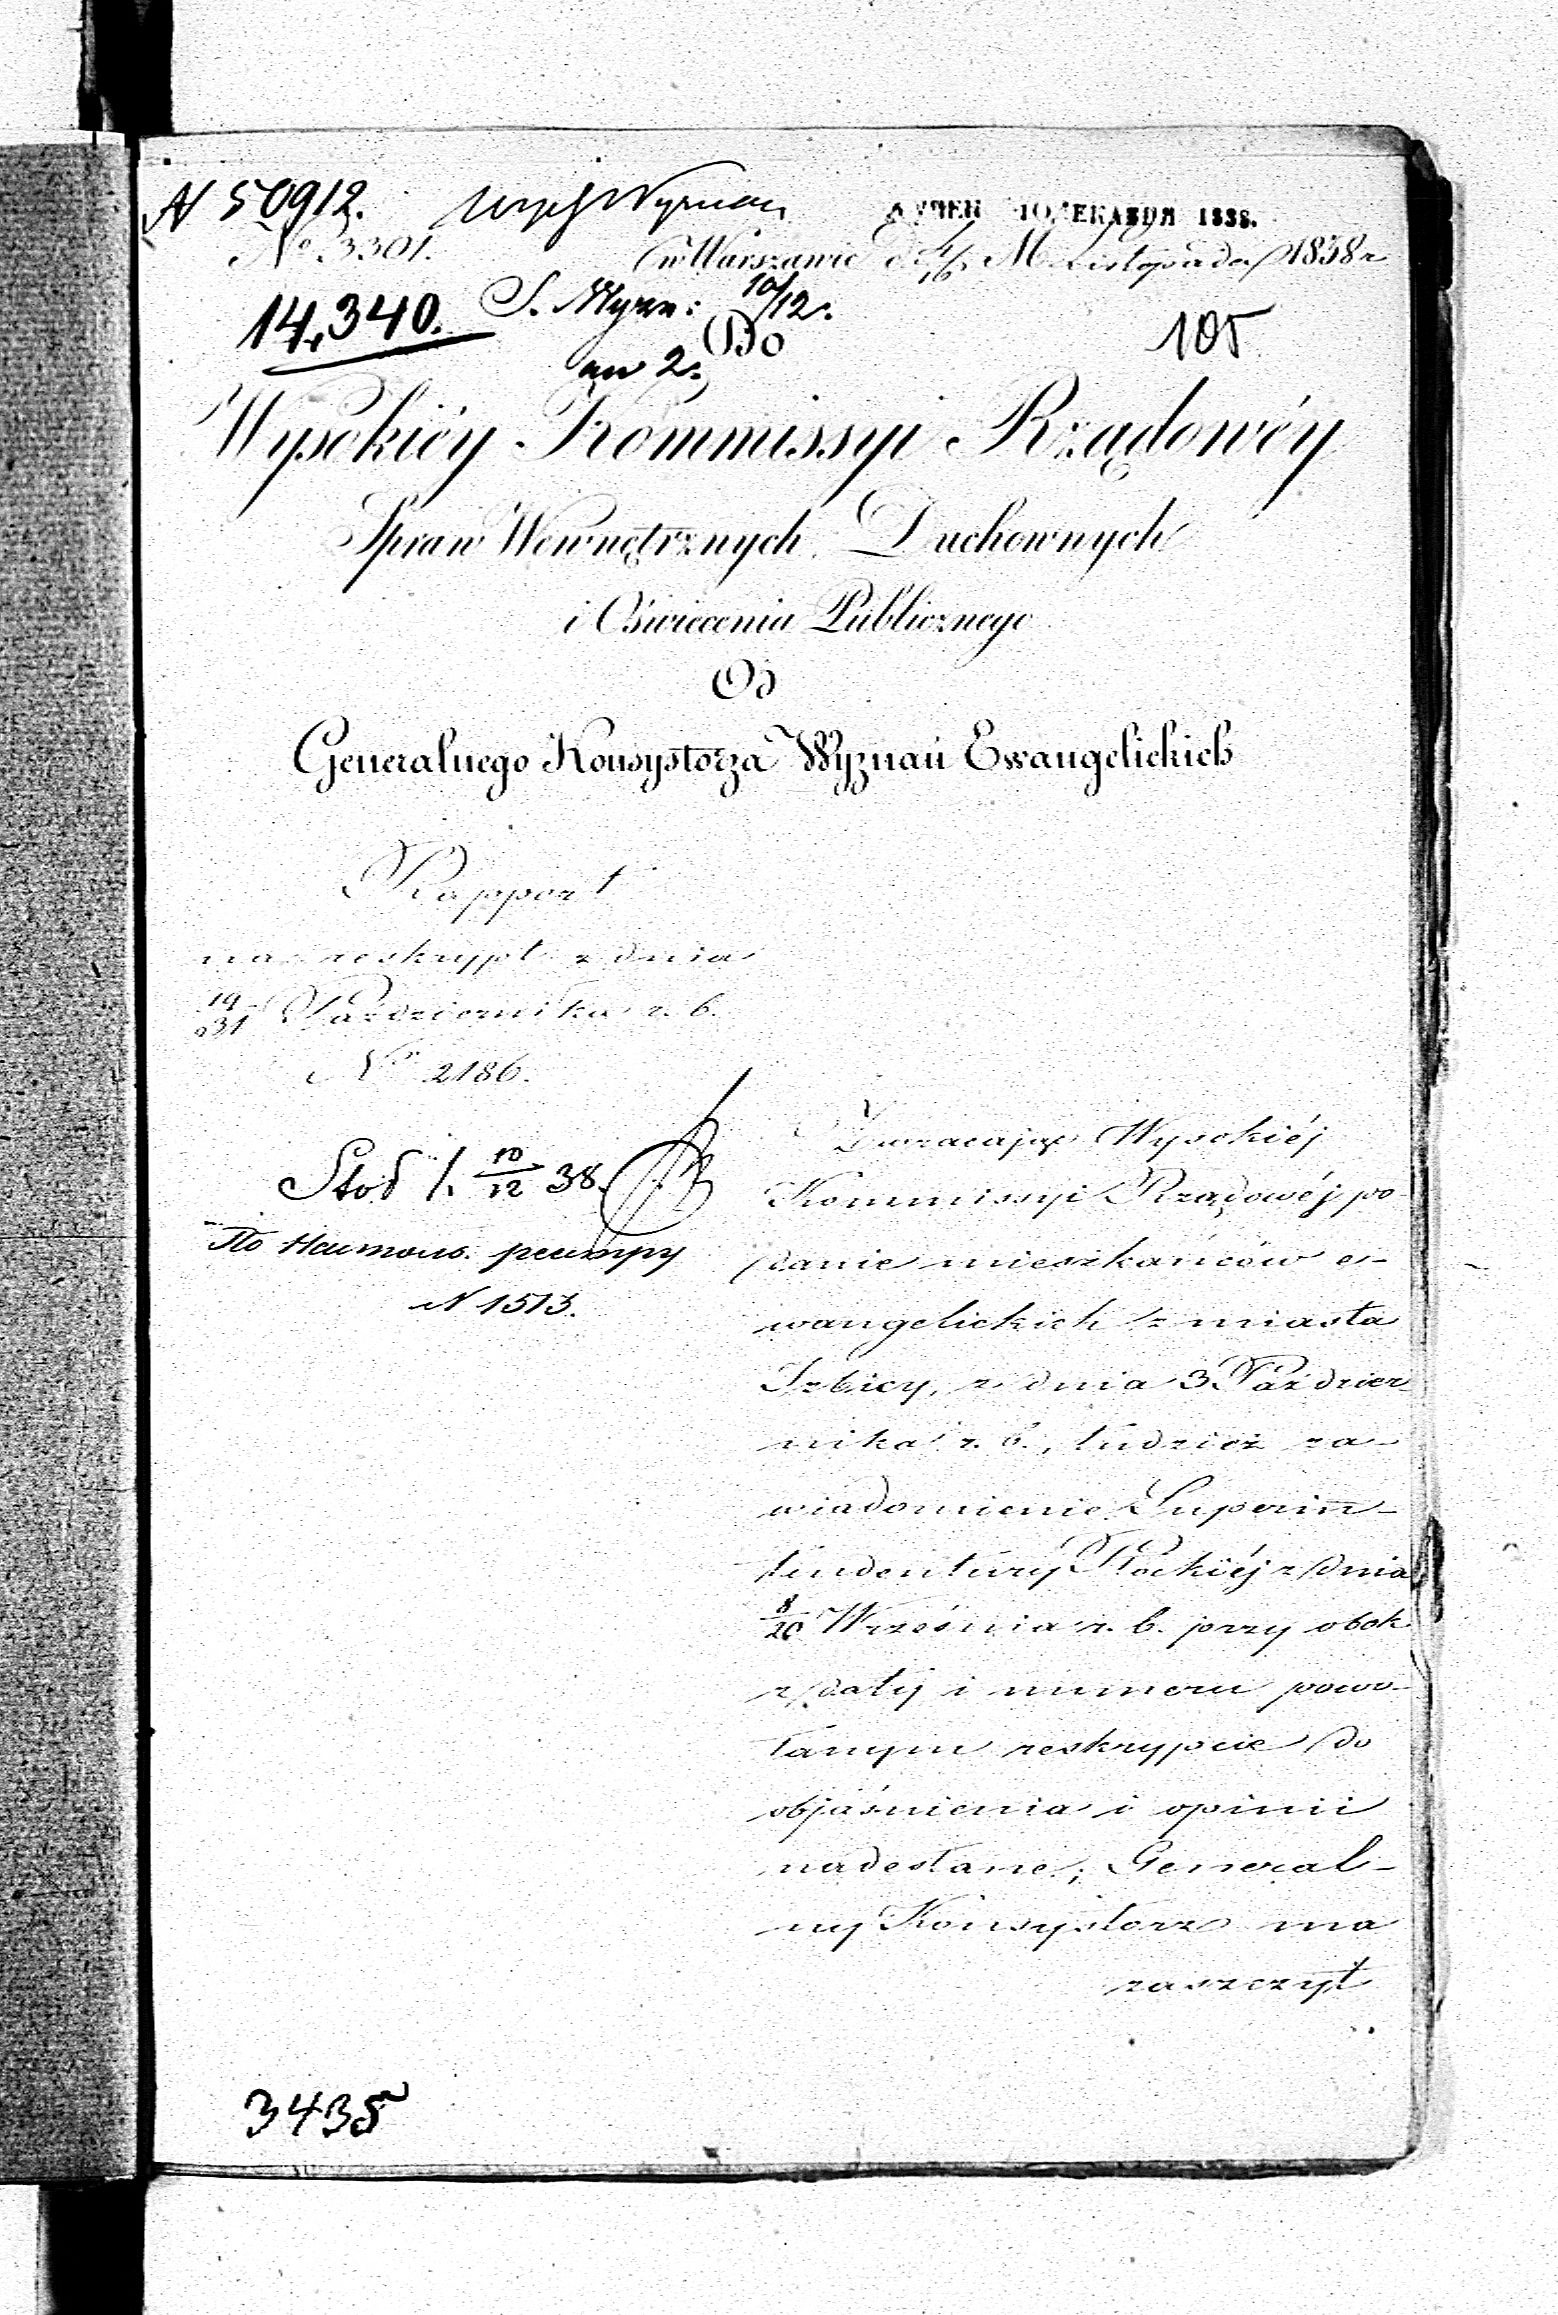 N 50912.
No 3301. w Warszawie d. 4/16 M. Listopada 1838 r
14,340. S. Wyzn: 10/12.
an 2. 105
Do
Wysokiéy Kommissyi Rządowéy
Spraw Wewnętrznych Duchownych
i Oświecenia Publicznego
Od
Generalnego Konsystorza Wyznań Ewangelickich
Rapport
na reskrypt z dnia
19/31 Października r. b.
No 2186.
Stod 1. 10/12 38.
По Настол. реэстру
N 1513.
Zwracając Wysokiéj
Kommissyi Rządowéj po-
danie mieszkańców e-
wangelickich z miasta
Izbicy, z dnia 3 Paździer-
nika r. b., tudzież za-
wiadomienie Superin-
tendentury Płockiéj z dnia
8/20 Września r. b. przy obok
z daty i numeru powo-
łanym reskrypcie do
objaśnienia i opinii
nadesłane; General-
ny Konsystorz ma
zaszczyt
3435